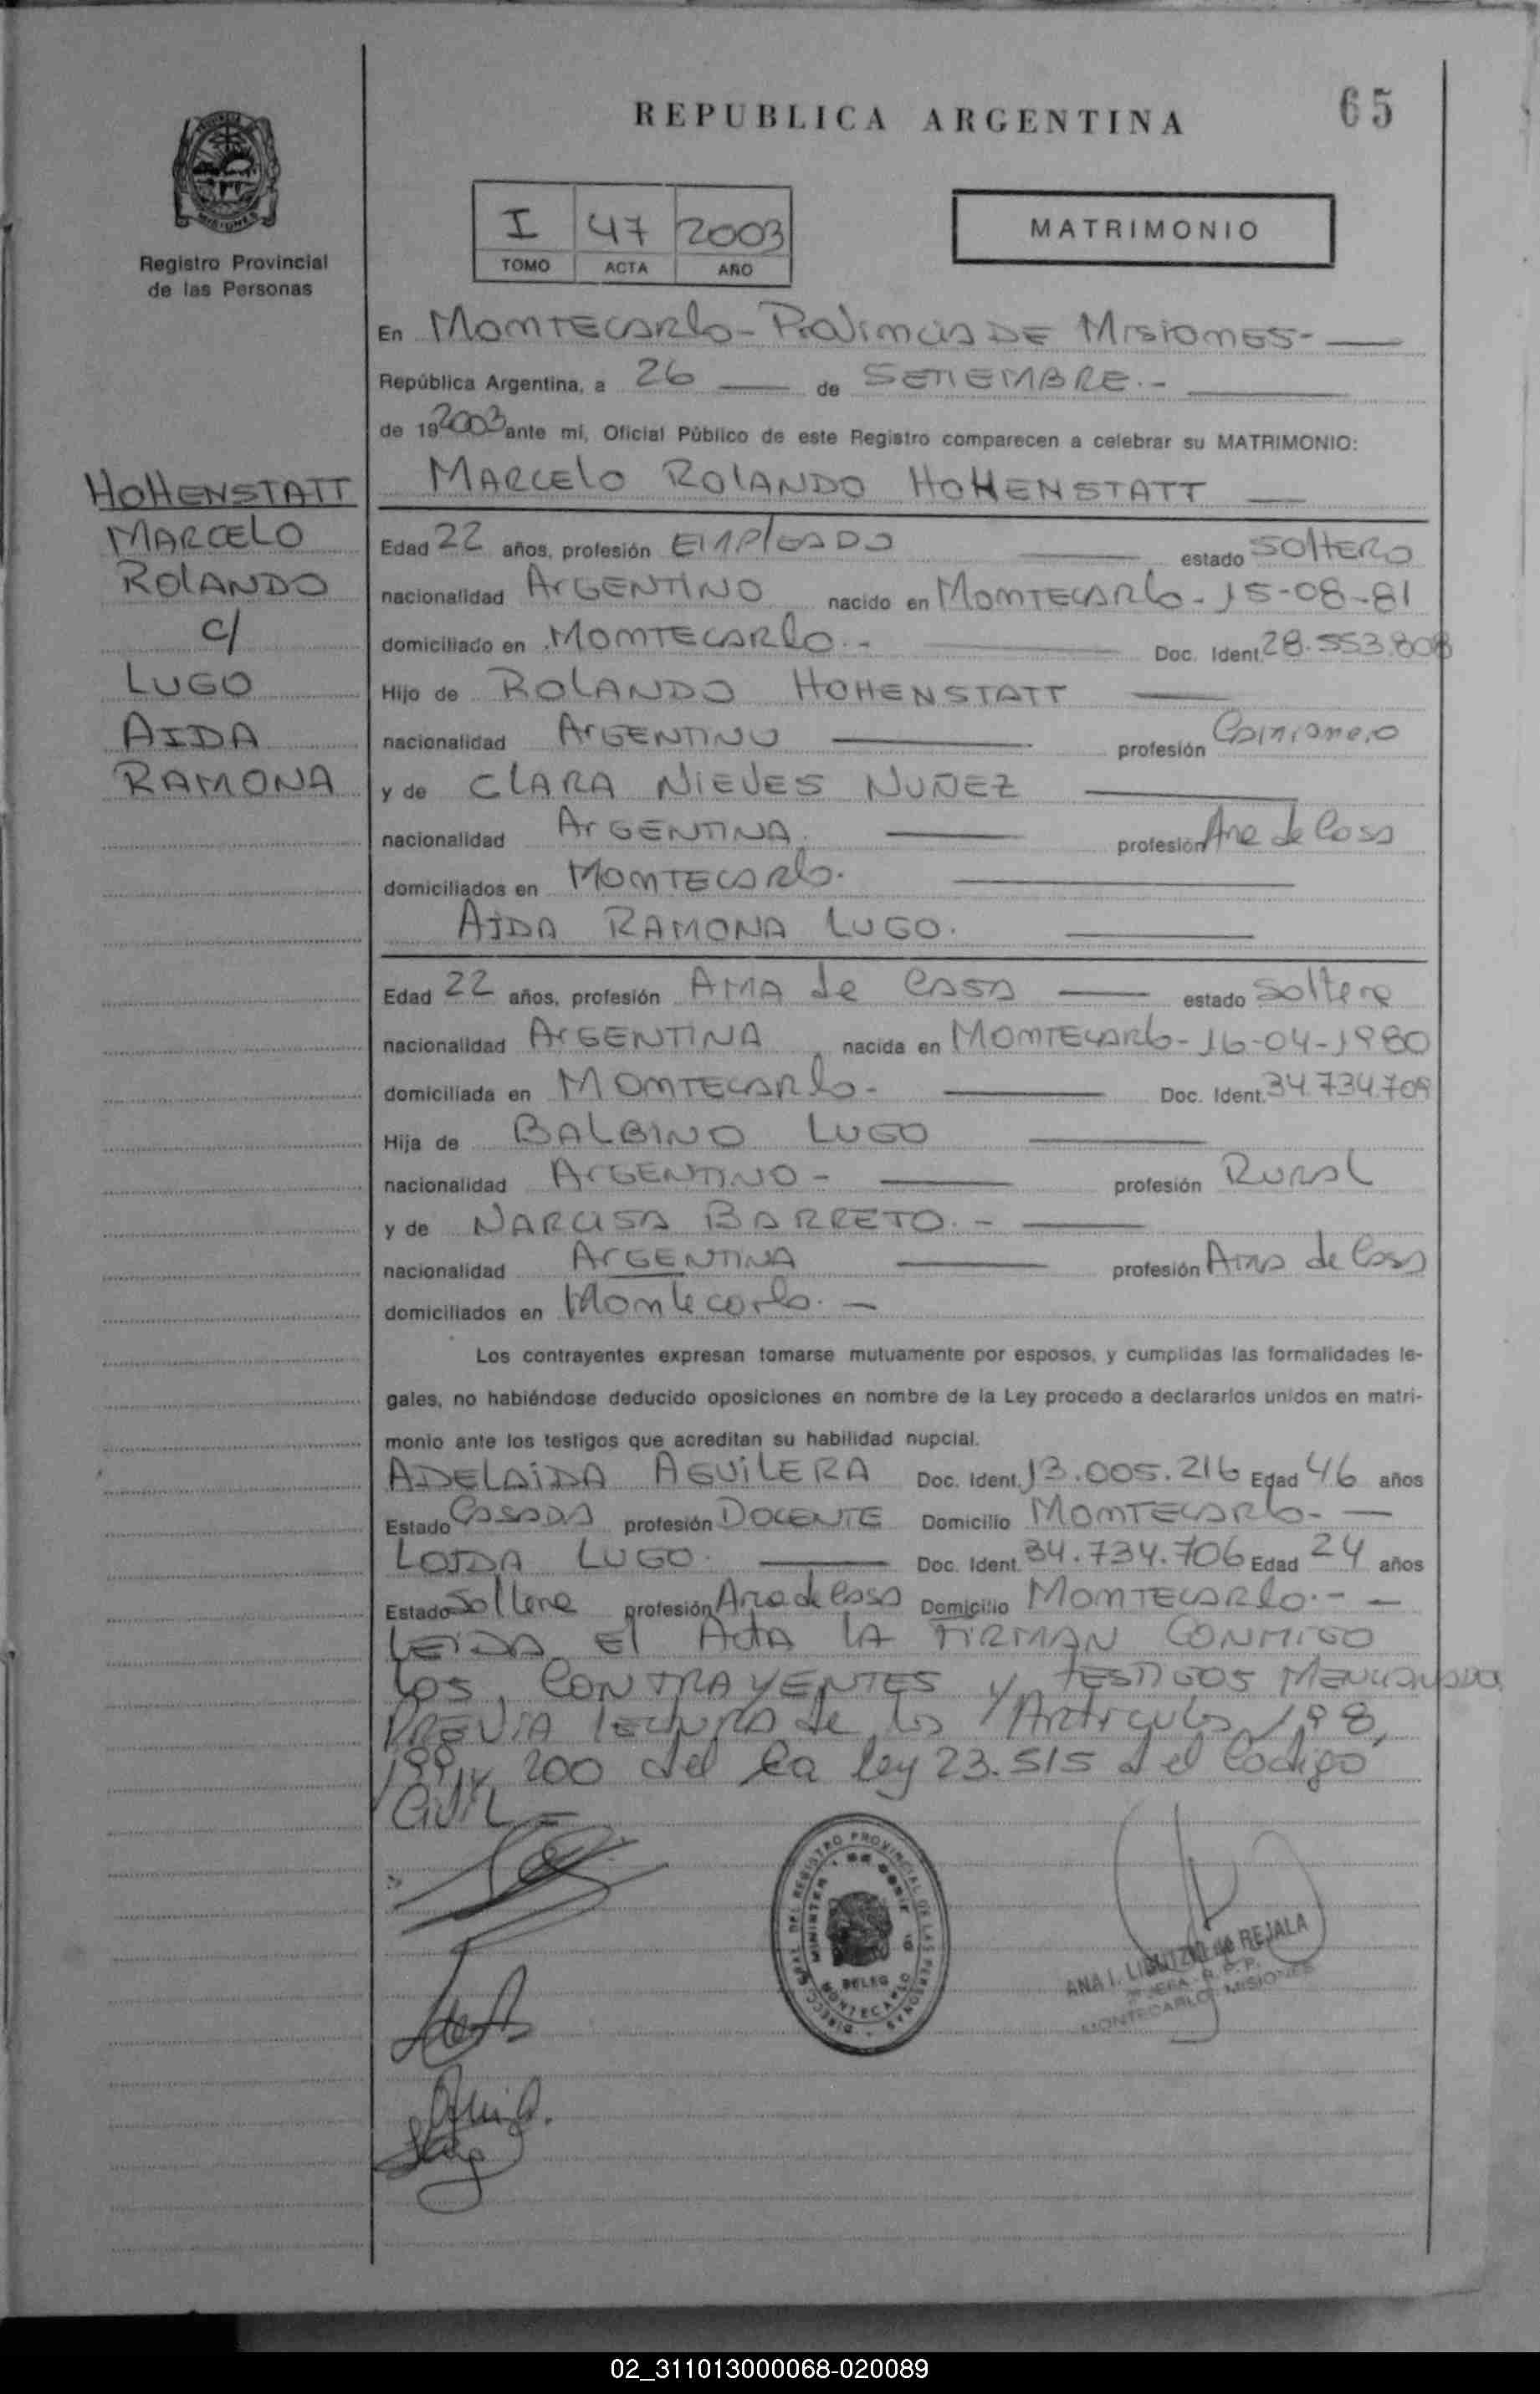 REPUBLICA ARGENTINA
65
Registro Provincial
de las Personas
I 47 2003
TOMO ACTA AÑO
MATRIMONIO
En MONTECARLO - PROVINCIA DE MISIONES -
República Argentina, a 26 de SETIEMBRE.-
de 192003 ante mi, Oficial Público de este Registro comparecen a celebrar su MATRIMONIO:
MARCELO ROLANDO HOHENSTATT
HOHENSTATT
MARCELO
ROLANDO
c/
LUGO
AIDA
RAMONA
Edad 22 años, profesión EMPLEADO estado SOLTERO
nacionalidad ARGENTINO nacido en MONTECARLO - 15-08-81
domiciliado en MONTECARLO.- Doc. Ident. 28.553.808
Hijo de ROLANDO HOHENSTATT
nacionalidad ARGENTINO profesión Camionero
y de CLARA NIEVES NUÑEZ
nacionalidad ARGENTINA. profesión Ama de Casa
domiciliados en MONTECARLO.
AIDA RAMONA LUGO.
Edad 22 años, profesión AMA de CASA estado soltera
nacionalidad ARGENTINA nacida en MONTECARLO - 16-04-1980
domiciliada en MONTECARLO - Doc. Ident. 34.734.709
Hija de BALBINO LUGO
nacionalidad ARGENTINO - profesión RURAL
y de NARCISA BARRETO.-
nacionalidad ARGENTINA profesión Ama de Casa
domiciliados en Montecarlo.-
Los contrayentes expresan tomarse mutuamente por esposos, y cumplidas las formalidades le-
gales, no habiéndose deducido oposiciones en nombre de la Ley procedo a declararlos unidos en matri-
monio ante los testigos que acreditan su habilidad nupcial.
ADELAIDA AGUILERA Doc. Ident. 13.005.216 Edad 46 años
Estado CASADA profesión DOCENTE Domicilio MONTECARLO.-
LOIDA LUGO. Doc. Ident. 34.734.706 Edad 24 años
Estado soltera profesión Ama de Casa Domicilio MONTECARLO.-
LEIDA El Acta LA FIRMAN CONMIGO
los CONTRAYENTES y TESTIGOS MENCIONADOS
PREVIA lectura de los Articulos 198,
199 y 200 del la ley 23.515 del Codigo
Civil -
DIRECC. GRAL. DEL REGISTRO PROVINCIAL DE LAS PERSONAS
DELEG
MONTECARLO
ANA I. de REJALA
JEFA R.P.P.
MONTECARLO - MISIONES
02_311013000068-020089